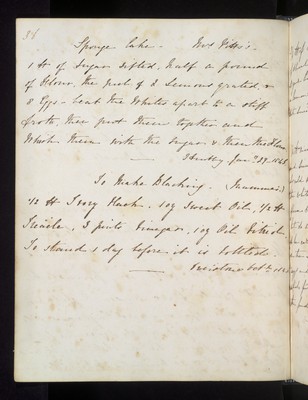 Sponge Cake -
1 lb of Sugar Sifted, half a pound
of Flour, the peel of 2 Lemons grated, &
8 Eggs - beat the Whites apart to a stiff
froth, then put them together and
Whisk them with the Sugar, & then the Flour
Jany 27.
To Make Blacking.
1/2 lb Ivory Black. 1 oz Sweet Oil, 1/2 lb
Treacle, 3 pints Vinegar, 1 oz Oil Vitriol
To stand 1 day before it is bottled.